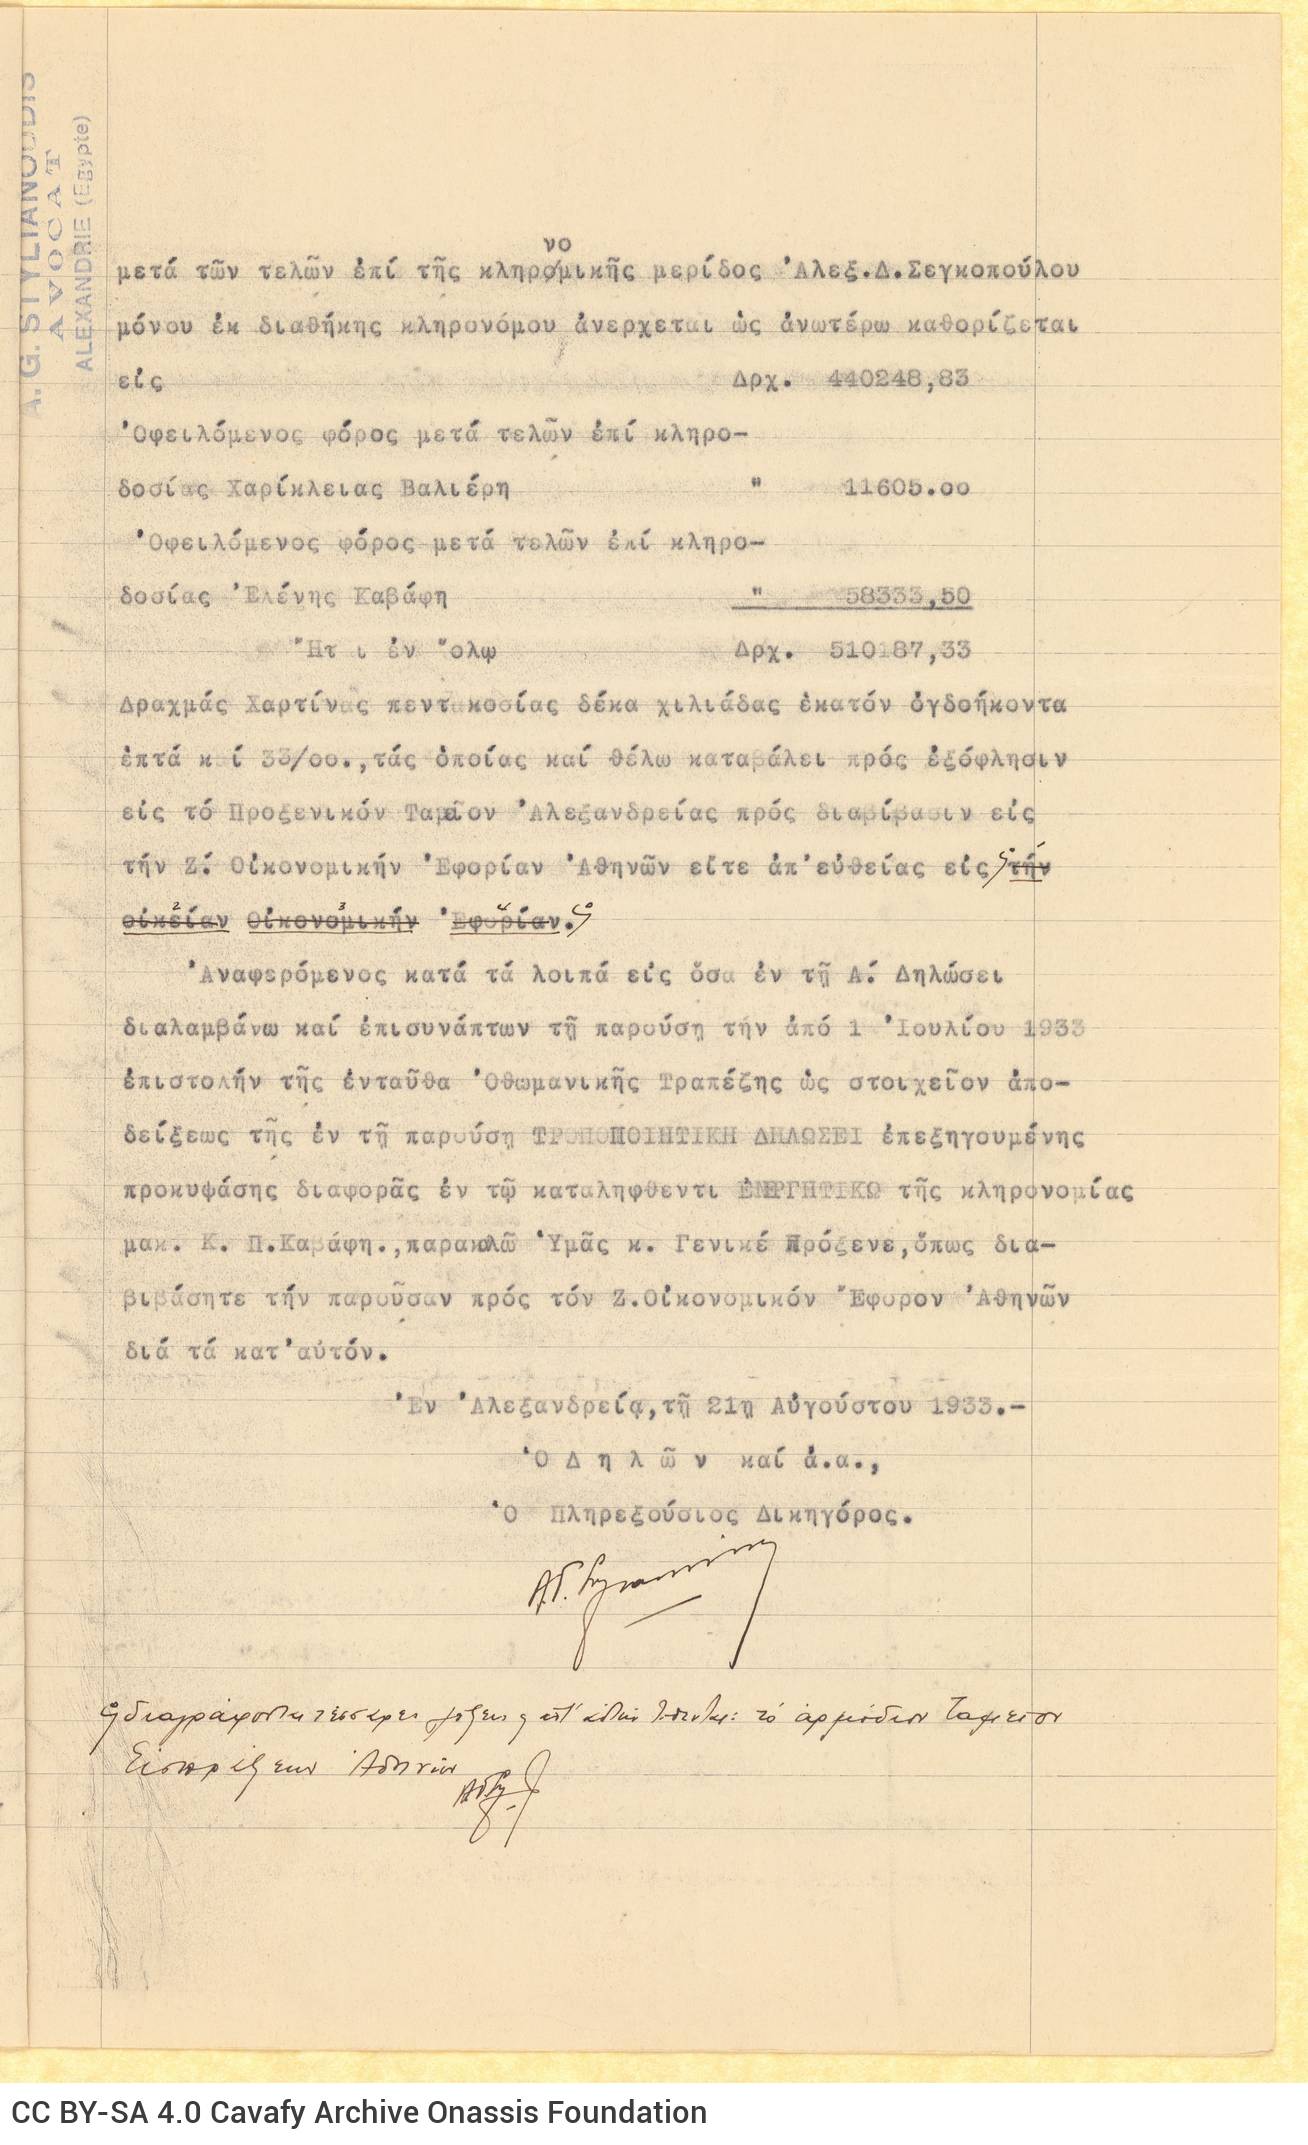 A. G. STYLIANOUDIS
AVOCAT
ALEXANDRIE (Egypte)
νο
μετά τῶν τελῶν ἐπί τῆς κληρομικῆς μερίδος Ἀλεξ.Δ.Σεγκοπούλου
μόνου ἐκ διαθήκης κληρονόμου ἀνερχεται ὡς ἀνωτέρω καθορίζεται
εἰς Δρχ. 440248,83
Ὀφειλόμενος φόρος μετά τελῶν ἐπί κληρο-
δοσίας Χαρίκλειας Βαλιέρη " 11605.οο
Ὀφειλόμενος φόρος μετά τελῶν ἐπί κληρο-
δοσίας Ἑλένης Καβάφη " 58333,50
Ἤτ ι ἐν ὅλῳ Δρχ. 510187,33
Δραχμάς Χαρτίνας πεντακοσίας δέκα χιλιάδας ἑκατόν ὀγδοήκοντα
ἑπτά καί 33/οο.,τάς ὁποίας καί θέλω καταβάλει πρός ἐξόφλησιν
εἰς τό Προξενικόν Ταμεῖον Ἀλεξανδρείας πρός διαβίβασιν εἰς
τήν Ζ΄. Οἰκονομικήν Ἐφορίαν Ἀθηνῶν εἴτε ἀπ'εὐθείας εἰς τήν
οἰκείαν Οἰκονομικήν Ἐφορίαν.
Ἀναφερόμενος κατά τά λοιπά εἰς ὅσα ἐν τῇ Α΄. Δηλώσει
διαλαμβάνω καί ἐπισυνάπτων τῇ παρούσῃ τήν ἀπό 1 Ἰουλίου 1933
ἐπιστολήν τῆς ἐνταῦθα Ὀθωμανικῆς Τραπέζης ὡς στοιχεῖον ἀπο-
δείξεως τῆς ἐν τῇ παρούσῃ ΤΡΟΠΟΠΟΙΗΤΙΚΗ ΔΗΛΩΣΕΙ ἐπεξηγουμένης
προκυψάσης διαφορᾶς ἐν τῷ καταληφθεντι ἘΝΕΡΓΗΤΙΚΩ τῆς κληρονομίας
μακ. Κ. Π.Καβάφη.,παρακαλῶ Ὑμᾶς κ. Γενικέ Πρόξενε,ὅπως δια-
βιβάσητε τήν παροῦσαν πρός τόν Ζ.Οἰκονομικόν Ἔφορον Ἀθηνῶν
διά τά κατ'αὐτόν.
Ἐν Ἀλεξανδρείᾳ,τῇ 21ῃ Αὐγούστου 1933.-
Ὁ Δ η λ ῶ ν καί ἀ.α.,
Ὁ Πληρεξούσιος Δικηγόρος.
διαγράφονται τέσσερες λέξεις τό ἁρμόδιον Ταμεῖον
Εἰσπράξεων Ἀθηνῶν